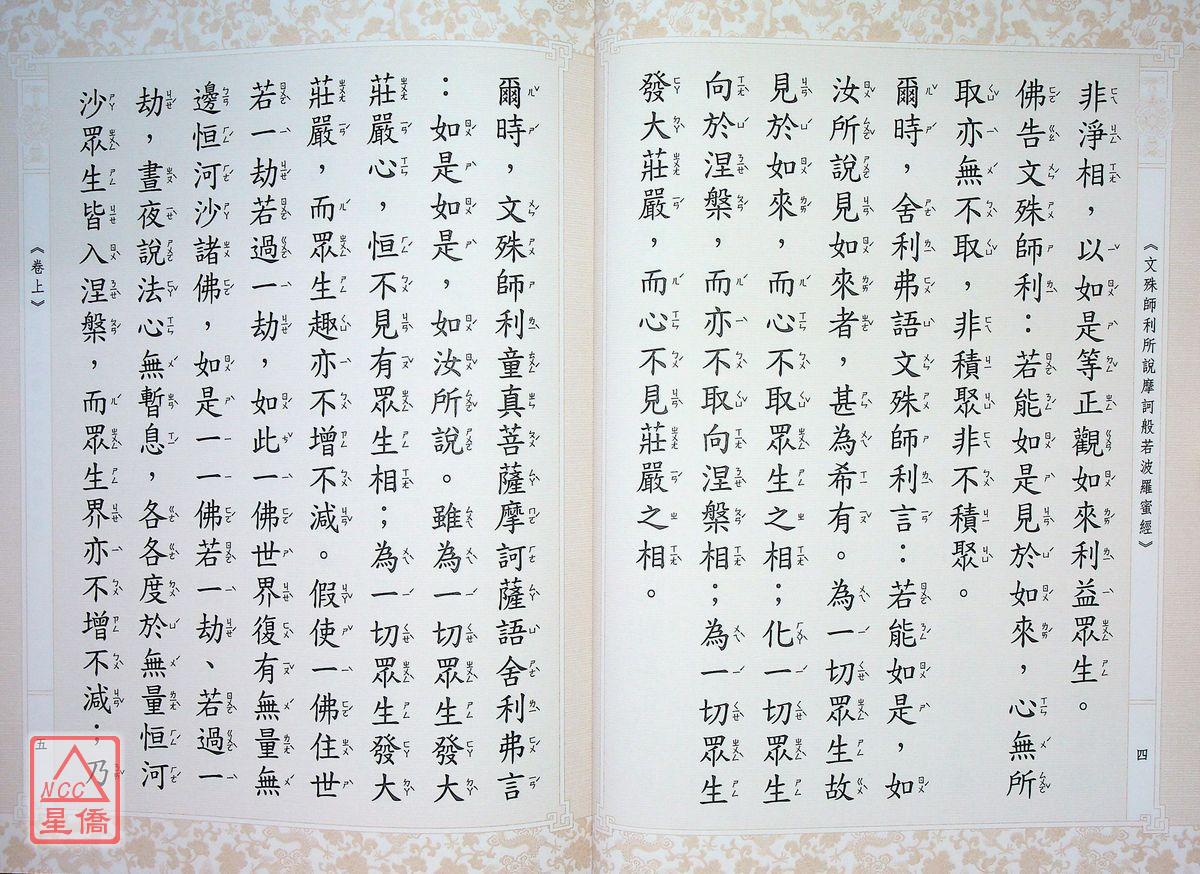 《文殊師利所說摩訶般若波羅蜜經》
四
非淨相，以如是等正觀如來利益眾生。
佛告文殊師利：若能如是見於如來，心無所
取亦無不取，非積聚非不積聚。
爾時，舍利弗語文殊師利言：若能如是，如
汝所說見如來者，甚為希有。為一切眾生故
見於如來，而心不取眾生之相；化一切眾生
向於涅槃，而亦不取向涅槃相；為一切眾生
發大莊嚴，而心不見莊嚴之相。
爾時，文殊師利童真菩薩摩訶薩語舍利弗言
：如是如是，如汝所說。雖為一切眾生發大
莊嚴心，恒不見有眾生相；為一切眾生發大
莊嚴，而眾生趣亦不增不減。假使一佛住世
若一劫若過一劫，如此一佛世界復有無量無
邊恒河沙諸佛，如是一一佛若一劫、若過一
劫，晝夜說法心無暫息，各各度於無量恒河
沙眾生皆入涅槃，而眾生界亦不增不減；乃
《卷上》
五
NCC
星僑